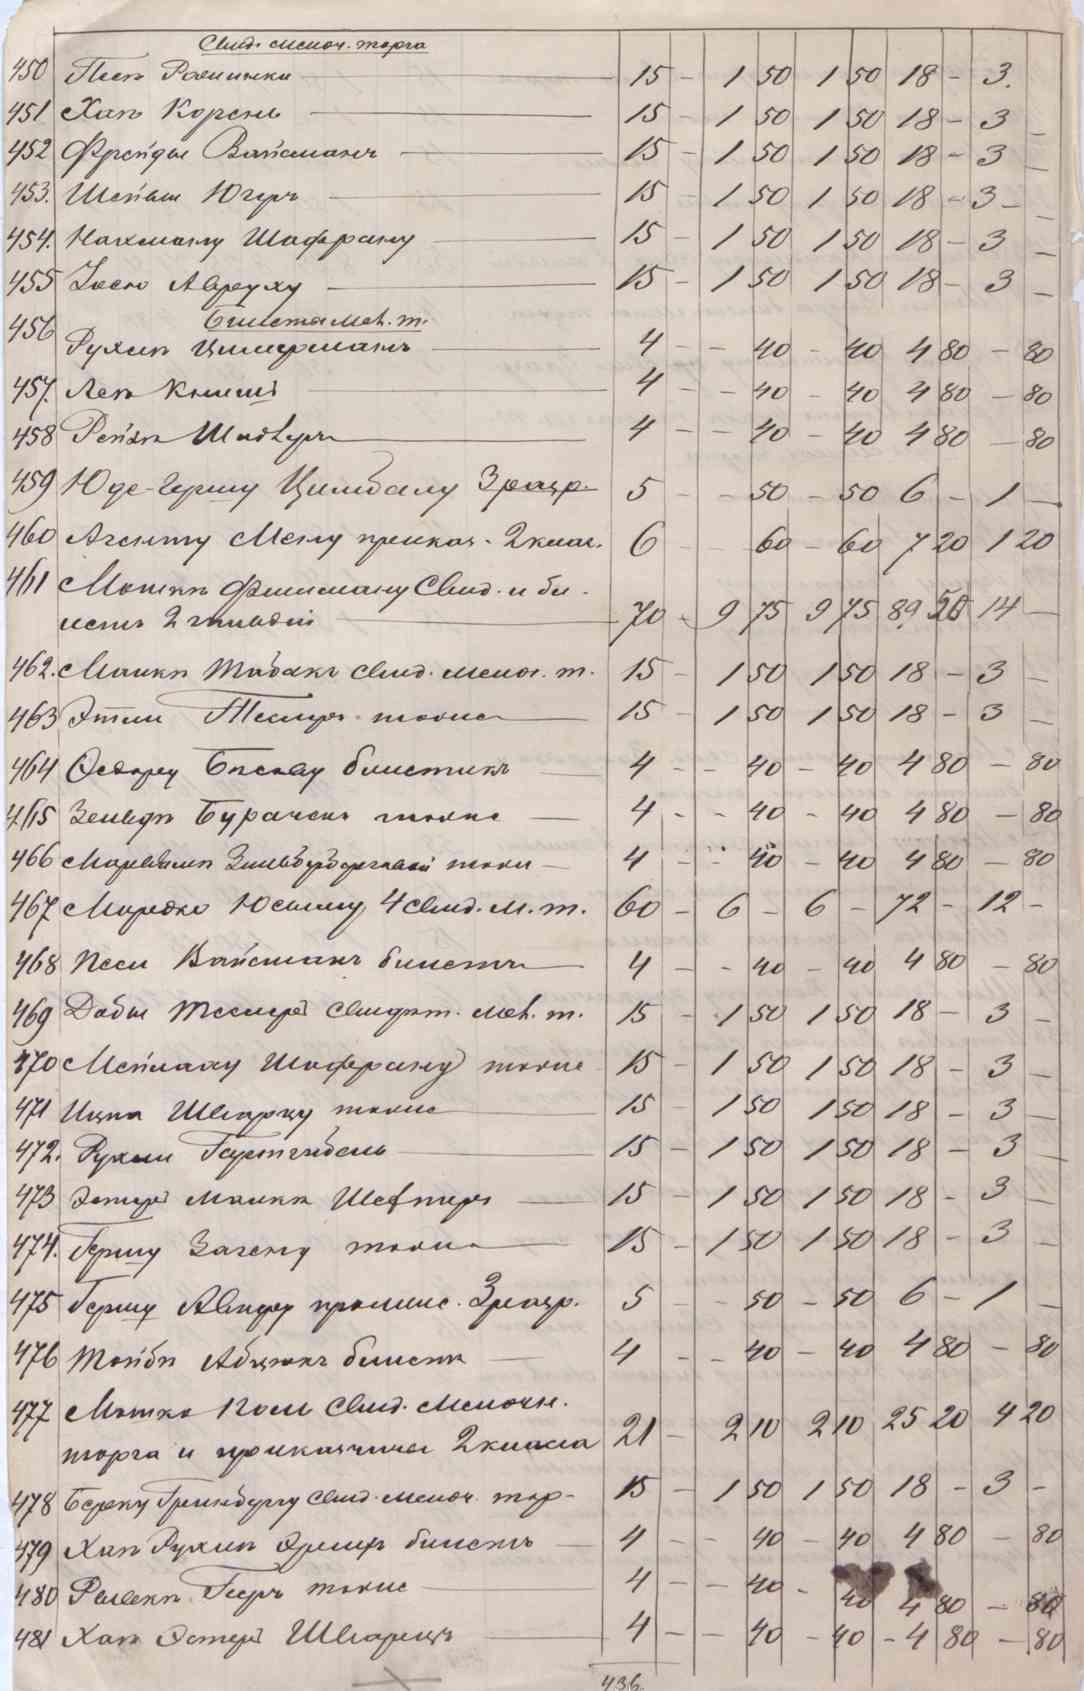 Свид. мелоч. торга
450 Песп Роминики 15 - 1 50 1 50 18 - 3.
451 Хап Корень 15 - 1 50 1 50 18 - 3 -
452 Фрейды Вайсманъ 15 - 1 50 1 50 18 - 3 -
453. Шейвы Югеръ 15 - 1 50 1 50 18 - 3 -
454. Нахману Шаферану 15 - 1 50 1 50 18 - 3 -
455 Іосю Авруху 15 - 1 50 1 50 18 - 3 -
Билета мел. т.
456 Рухлѣ Цимерманъ 4 - - 40 - 40 4 80 - 80
457. Леѣ Книш 4 - - 40 - 40 4 80 - 80
458 Рейзѣ 4 - - 40 - 40 4 80 - 80
459 Юде-Гершу Цимбалу 3 разр. 5 - - 50 - 50 6 - 1 -
460 Агенту Мелу приказ. 2 клас. 6 - - 60 - 60 7 20 1 20
461 Мошкѣ Фишману Свид. и би-
летъ 2 гильдіи 70 - 9 75 9 75 89 50 14 -
462. Малкѣ Табакъ свид. мелоч. т. 15 - 1 50 1 50 18 - 3 -
463 Этли Теслеръ тоже 15 - 1 50 1 50 18 - 3 -
464 билетикъ 4 - - 40 - 40 4 80 - 80
465 Зельдѣ Бурачекъ тоже 4 - - 40 - 40 4 80 - 80
466 Зильберберговой тоже 4 - - 40 - 40 4 80 - 80
467 Мордко 4 свид. м. т. 60 - 6 - 6 - 72 - 12 -
468 Песи Вайсманъ билетъ 4 - - 40 - 40 4 80 - 80
469 Добы Теслеръ свидѣт. мел. т. 15 - 1 50 1 50 18 - 3 -
470 Мейлаху Шаферану тоже 15 - 1 50 1 50 18 - 3 -
471 Ицка Шварцу тоже 15 - 1 50 1 50 18 - 3 -
472. Рухли 15 - 1 50 1 50 18 - 3 -
473 Эстеръ Малкѣ Шехтеръ 15 - 1 50 1 50 18 - 3 -
474. Гершу Загену тоже 15 - 1 50 1 50 18 - 3 -
475 Гершу промыс. 3 разр. 5 - - 50 - 50 6 - 1 -
476 Тойбѣ билетъ 4 - - 40 - 40 4 80 - 80
477 Мошко Коли Свид. Мелочн.
торга и приказчичье 2 класса 21 - 2 10 2 10 25 20 4 20
478 Береку Гринбергу свид. мелоч. тор- 15 - 1 50 1 50 18 - 3 -
479 Хаѣ Рухлѣ билетъ 4 - - 40 - 40 4 80 - 80
480 тоже 4 - - 40 - 40 4 80 - 80
481 Хаѣ Эстеръ Шварцъ 4 - - 40 - 40 - 4 80 - 80
436.